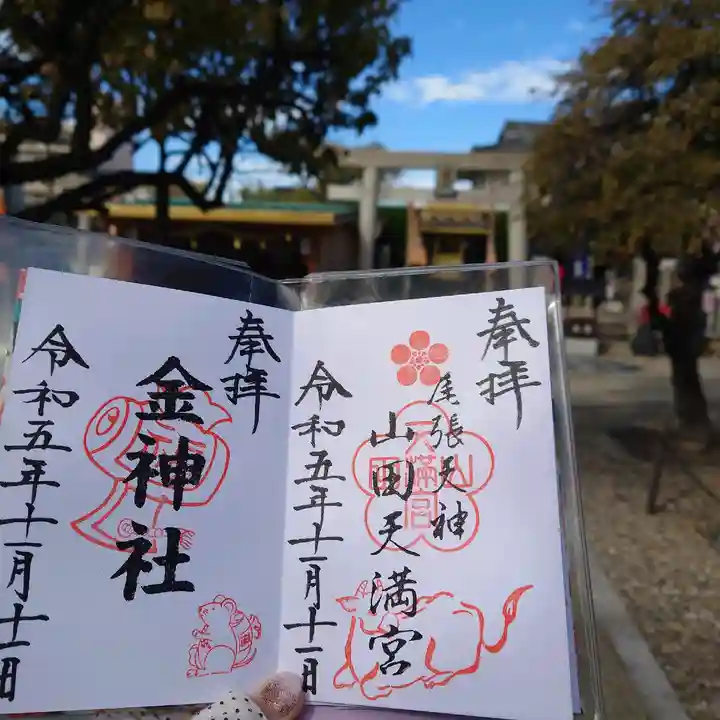 奉拝
尾張天神
山田天満宮
令和五年十一月十一日
山田天満宮
奉拝
金神社
令和五年十一月十一日